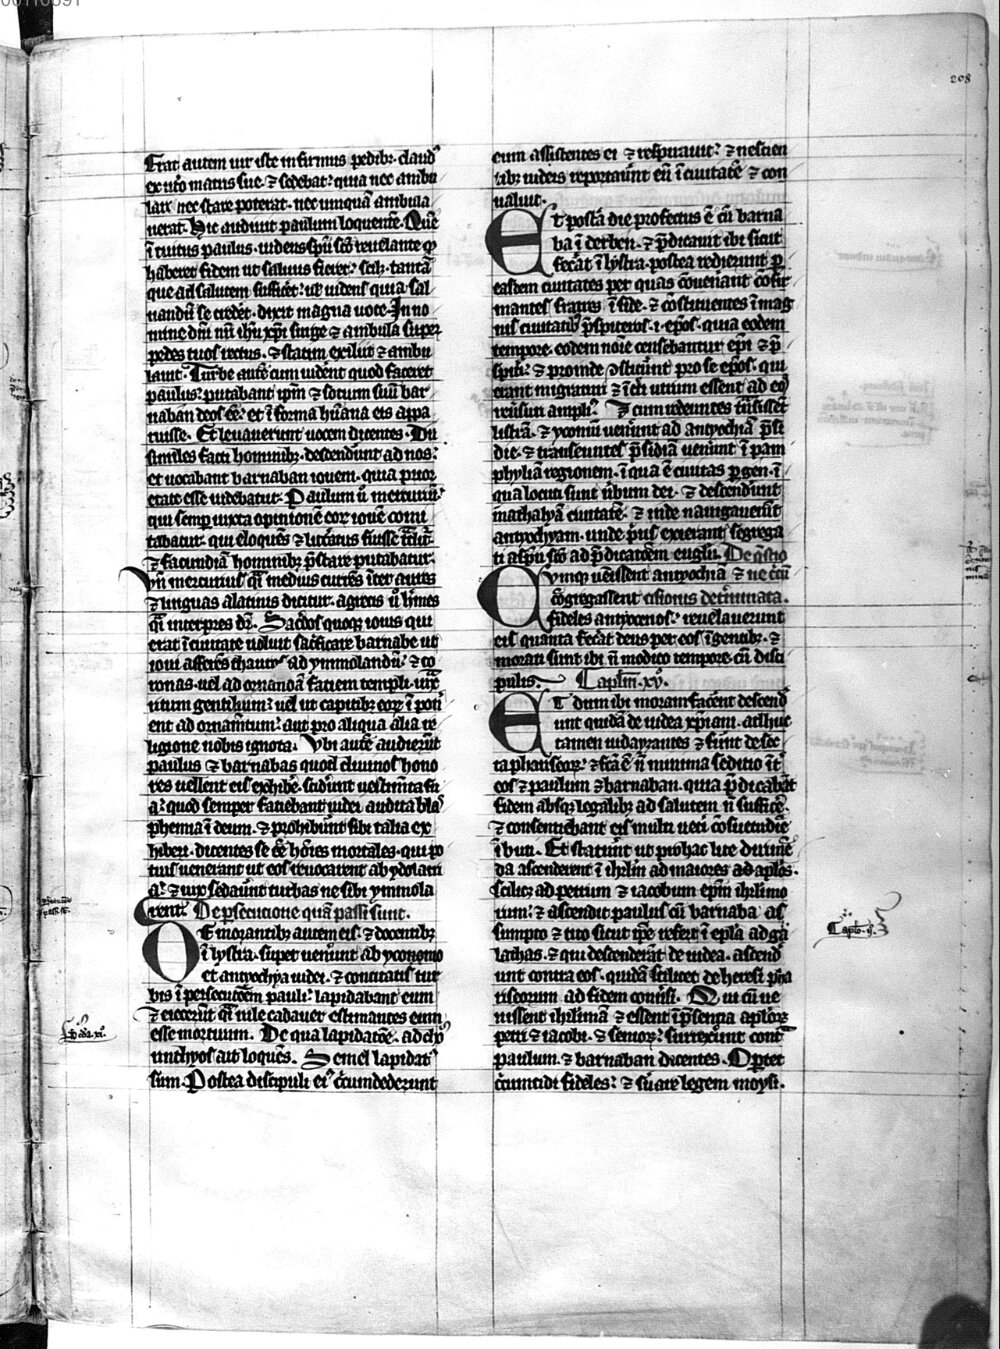 208
Erat autem uir iste infirmus pedibꝫ. claudꝰ
ex ut̄o matris sue. ⁊ sedebat: quia nec ambu
lare nec stare poterat. nec unquā ambula
uerat. Hic audiuit paulum loquentē. Quē
ītuitus paulus. uidens sp̄u sc̄o reuelante ꝙ
haberet fidem ut saluus fieret: scilꝫ. tantā
que ad salutem sufficēt: ul̓ uidens quia sal
uandū se credēt. dixit magna uoce. In no
mine dn̄i nr̄i ih̓u xp̄i surge ⁊ ambula super
pedes tuos rectus. ⁊ statim exiliit ⁊ ambu
lauit. Turbe autē cum uidēnt quod faceret
paulus: putabant ip̄m ⁊ socium suū bar
naban deos eē. et ī forma hūana eis appa
ruisse. Et leuauerunt uocem dicentes. Dii
similes facti hominibꝫ. descendūt ad nos:
et uocabant barnaban iouem. quia prior
etate esse uidebatur. Paulum ū mercuriū:
qui semꝑ iuxta opinionē eoꝝ iouē comi
tabatur. qui eloquēs ⁊
⁊ facundiā hominibꝫ p̄stare putabatur.
Vn̄ mercurius q̄i medius currēs īter
⁊ linguas a latinis dicitur. a grecis ū h̓mes
q̄i interpres dr̄. Sacdos quoqꝫ iouis qui
erat ī ciuitate uoluit sac̓ficare barnabe ut
ioui afferēs thauros ad ymmolandū: ⁊ co
ronas. uel ad ornandā faciem templi. iuxͣ
ritum gentilium: uel ut capitibꝫ eoꝝ ī poñ
ent ad ornam̄tum: aut pro aliqua alia re
ligione nobis ignota. Vbi autē audierūt
paulus ⁊ barnabas quod diuinos hono
res uellent eis exhibē. scidūnt uestim̄ta sͣ
aͣ: quod semper faciebant iudei audita blaͣ
phemia ī deum. ⁊ prohibūnt sibi talia ex
hiberi. dicentes se eē hōies mortales. qui po
tius uenerant ut eos reuocarent ab ydolatⁱ
aͣ: ⁊ uix sedaūnt turbas ne sibi ymmola
rent. De persecutione quā passi sunt.
DE morantibꝫ autem eis. ⁊ docentibꝫ
ī lystra. super uenīunt ab yconyo
et antyochya iudei. ⁊ concitatis tur
bis ī persecucōem pauli: lapidabant eum
⁊ eiecerūt q̄i uile cadauer estimantes eum
esse mortuum. De qua lapidatōe. ad
ait loquēs. Semel lapidatꝰ
sum. Postea discipuli eiꝰ c̓cumdederunt
eum assistentes ei ⁊ respirauit: ⁊ nescien
tibꝫ iudeis reportaūnt eū ī ciuitatē ⁊ con
ualuit.
ET posta͛ die profectus ē cū barna
ba ī derben. ⁊ p̄dicauit ibi sicut
fec̓at ī lystra. postea redierunt ꝑ
easdem ciuitates per quas cōuenānt cōfir
mantes fratres ī fide. ⁊ cōstituentes ī mag
nis ciuitatibꝫ p̄sbiteros. i. ep̄os. quia eodem
tempore. eodem noīe censebantur ep̄i ⁊ p̄
sbitⁱ: ⁊ proinde ꝯstitūnt pro se ep̄os. qui
erant migraturi ⁊ īc̓ti utrum essent ad eos
reūsuri ampliꝰ. Et cum uidentes t̓nsissēt
listrā. ⁊ yconiū uenīunt ad antyochiā p̄si
die. ⁊ transeuntes p̄sidiā uenīunt ī pam
phyliā regionem. ī qua ē ciuitas ꝑgen. ī
qua locuti sunt ūbum dei. ⁊ descendūnt
ciuitatē. ⁊ inde nauigauerūt
antyochyam. unde pͥus exierant sēgrega
ti a sp̄u sc̄o ad p̄dicatōem eugl̄ii. De q̄stiōe
Cvmqꝫ uēissent antyochiā ⁊ ne c̓cū
cōgregassent cisionis detīminata.
fideles antyocenos: reuelauerunt
eis quanta fec̓at deus per eos ī gentibꝫ. ⁊
morati sunt ibi n̄ modico tempore. cū disci
pulis. Capl̄m. xv.
ET dum ibi moram facēnt descend
unt quidā de iudea xp̄iani. adhuc
tamen iudayzantes ⁊ fūnt de sec
ta phariseoꝝ: ⁊ fc̄a ē n̄ minima seditio īt̓
eos ⁊ paulum ⁊ barnaban. quia p̄dicabāt
fidem absqꝫ legalibꝫ ad salutem n̄ sufficē.
⁊ consentiebant eis multi ueci cōsuetudīe
ībuti. Et statūnt ut pro hac lite dirimē
da ascenderent ī ih̓rlm̄ ad maiores ad apl̄os.
scilicet ad petrum ⁊ iacobum ep̄m ih̓rlīmo
rum: ⁊ ascendit paulus cū barnaba as
sumpto ⁊ tito sicut ip̄e refert ī epl̄a ad ga
lathas. ⁊ qui descenderāt de iudea. ascend
unt contra eos. quidā scilicet de heresi pha
riseorum ad fidem conūsi. Qui cū ue
nissent ih̓rlīmā ⁊ essent ī p̄sentia apl̄oꝝ
petri ⁊ iacobi. ⁊ senioꝝ: surrexūnt contͣ
paulum. ⁊ barnaban dicentes. Oportet
c̓cumcidi fideles: ⁊ s̓uare legem moysi.